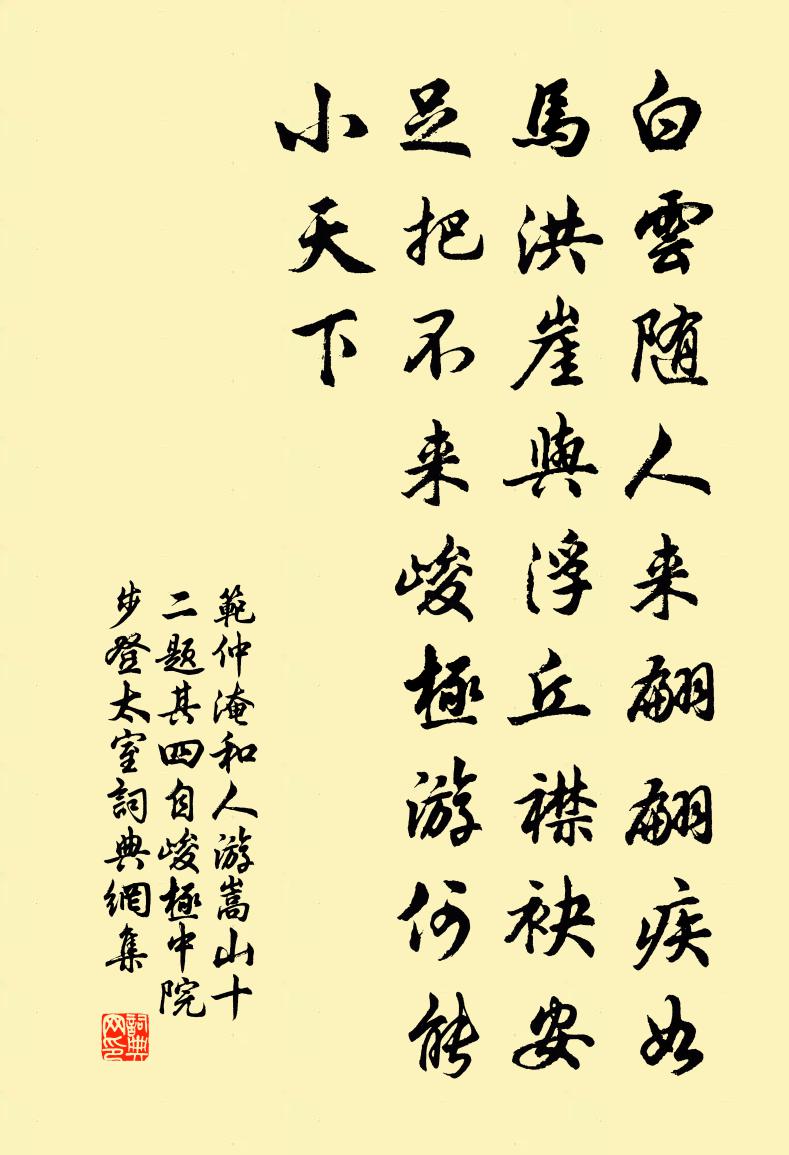 白雲随人来翩翩疾如
馬洪崖與浮丘襟袂安
足把不来峻極游何能
小天下
範仲淹和人游嵩山十
二題其四自峻極中院
步登太室詞典網集
詞典
网印